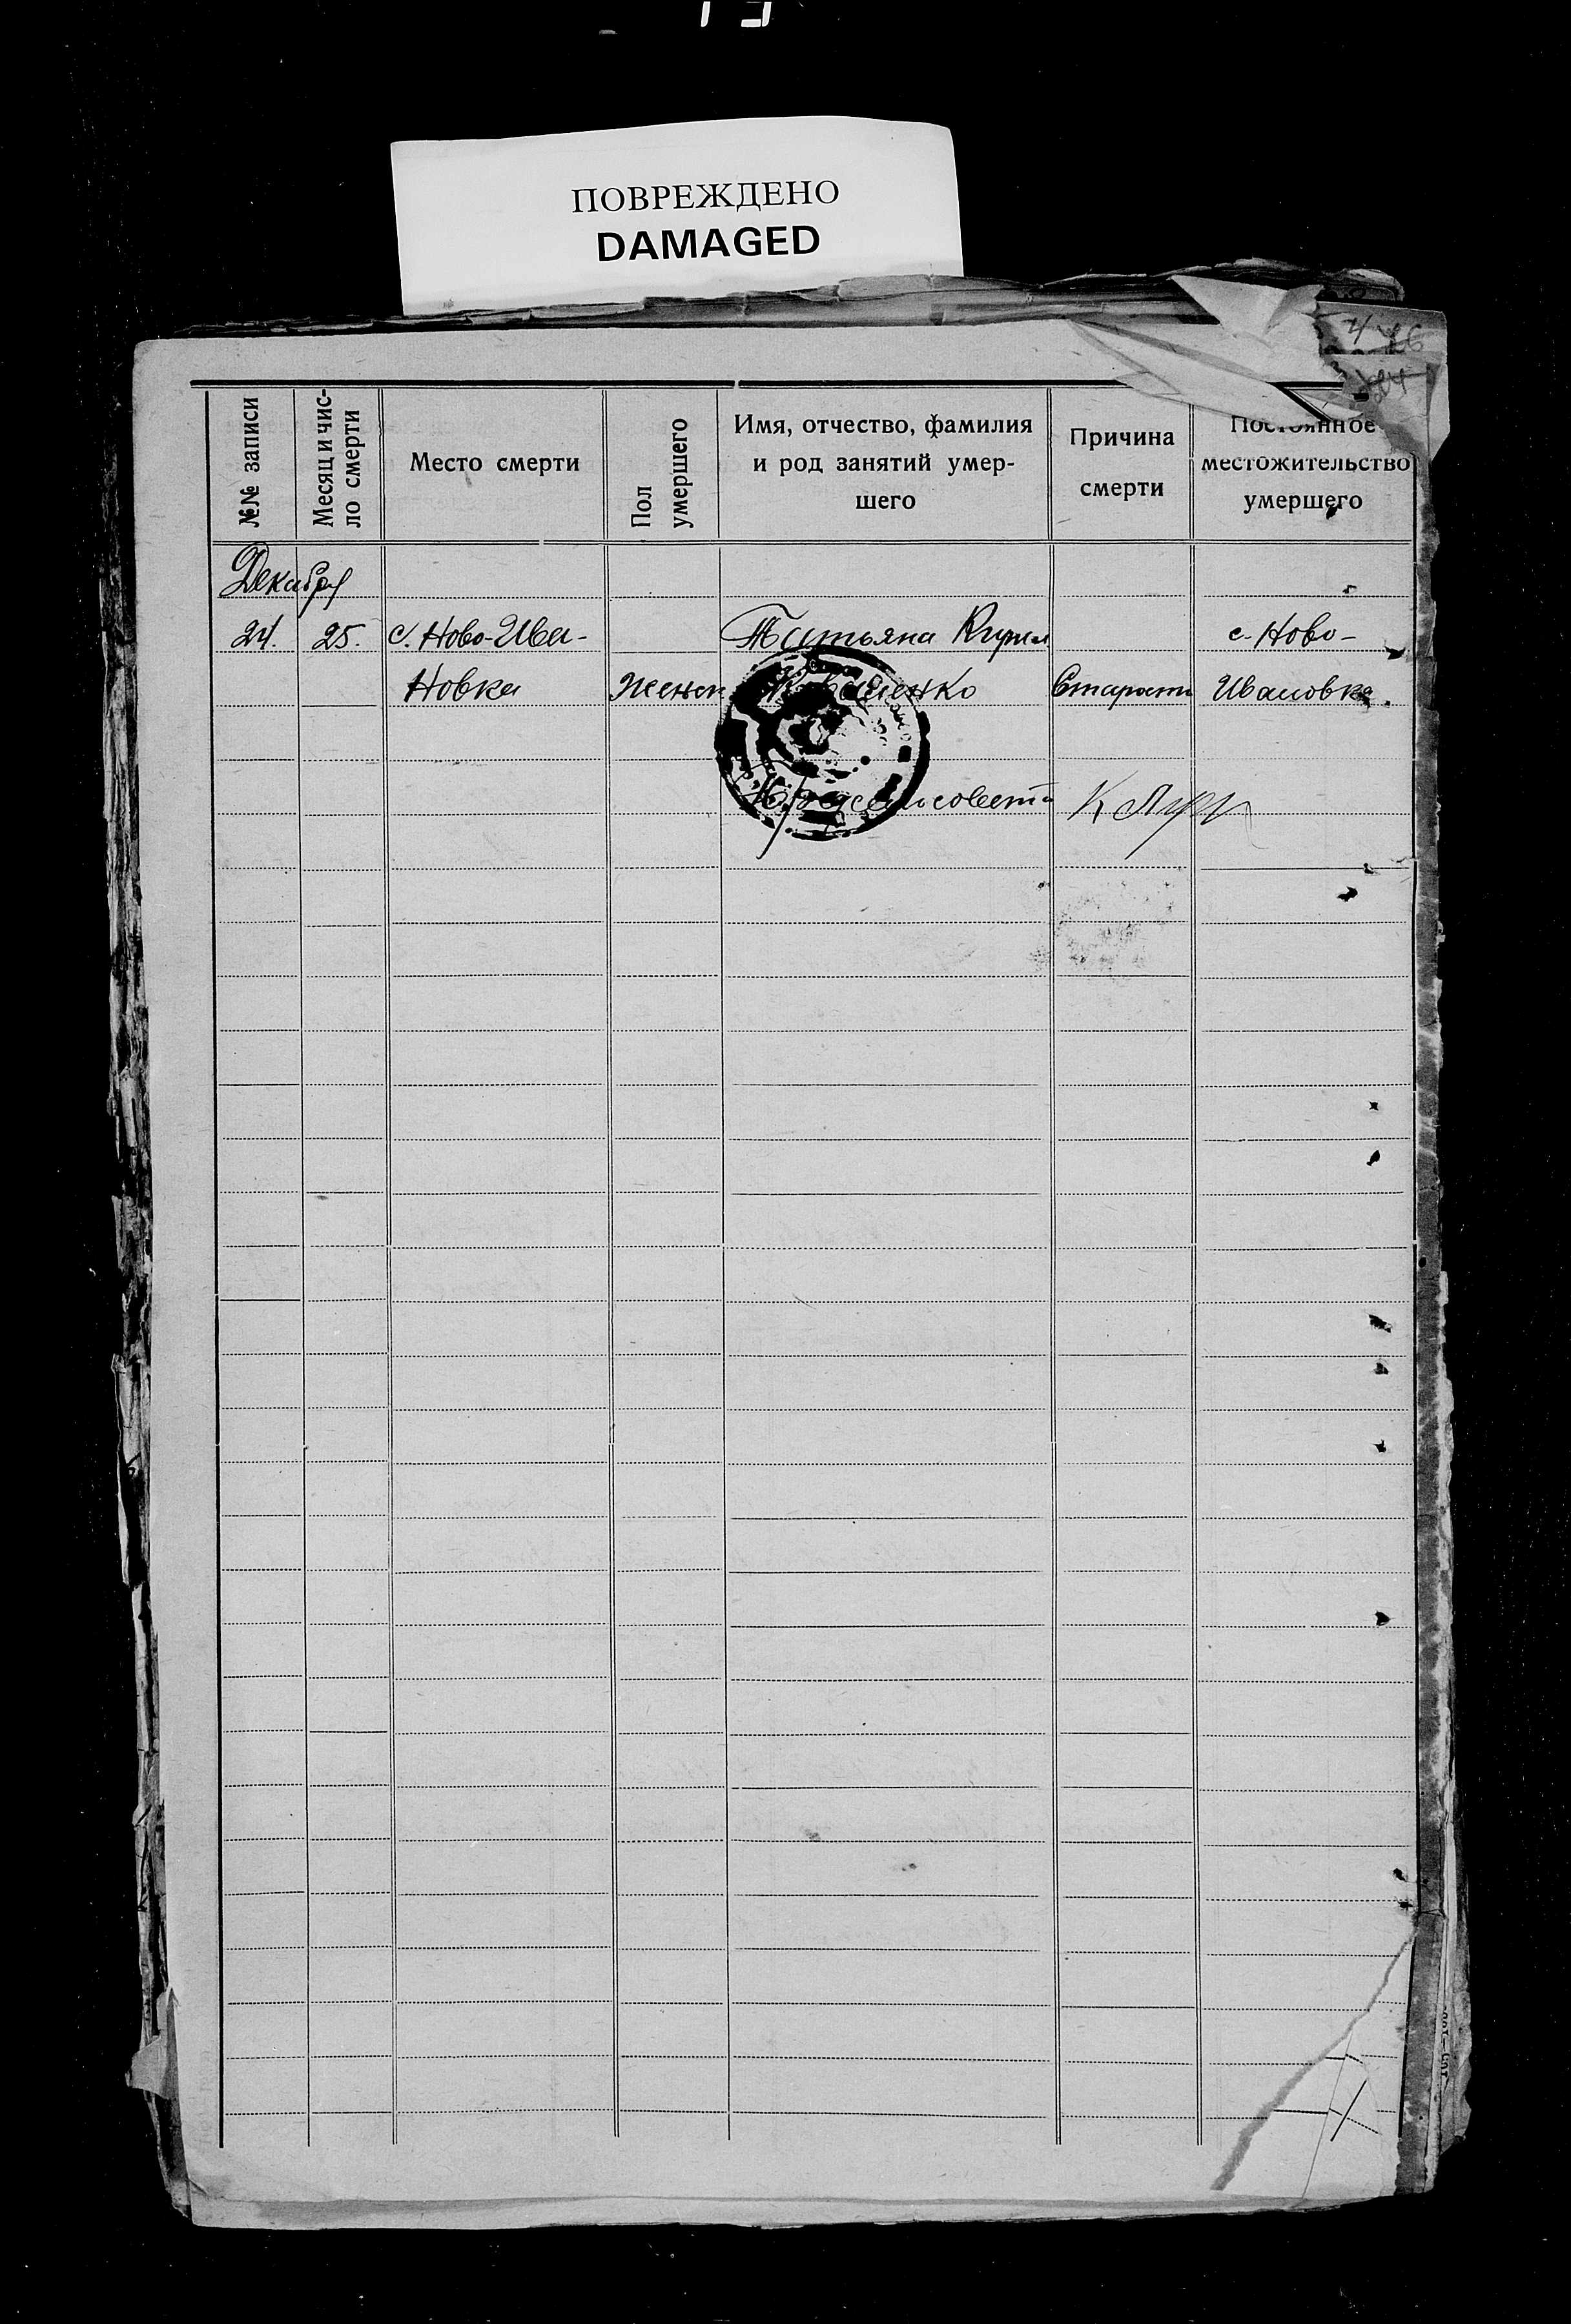 ПОВРЕЖДЕНО
DAMAGED
№№ записи
Месяц и чис-
ло смерти
Место смерти
Пол
умершего
Имя, отчество, фамилия
и род занятий умер-
шего
Причина
смерти
Постоянное
местожительство
умершего
Декабрь
24. 25. с. Ново-Ива- Татьяна с. Ново-
новка женск Старость Ивановка.
сельсовета